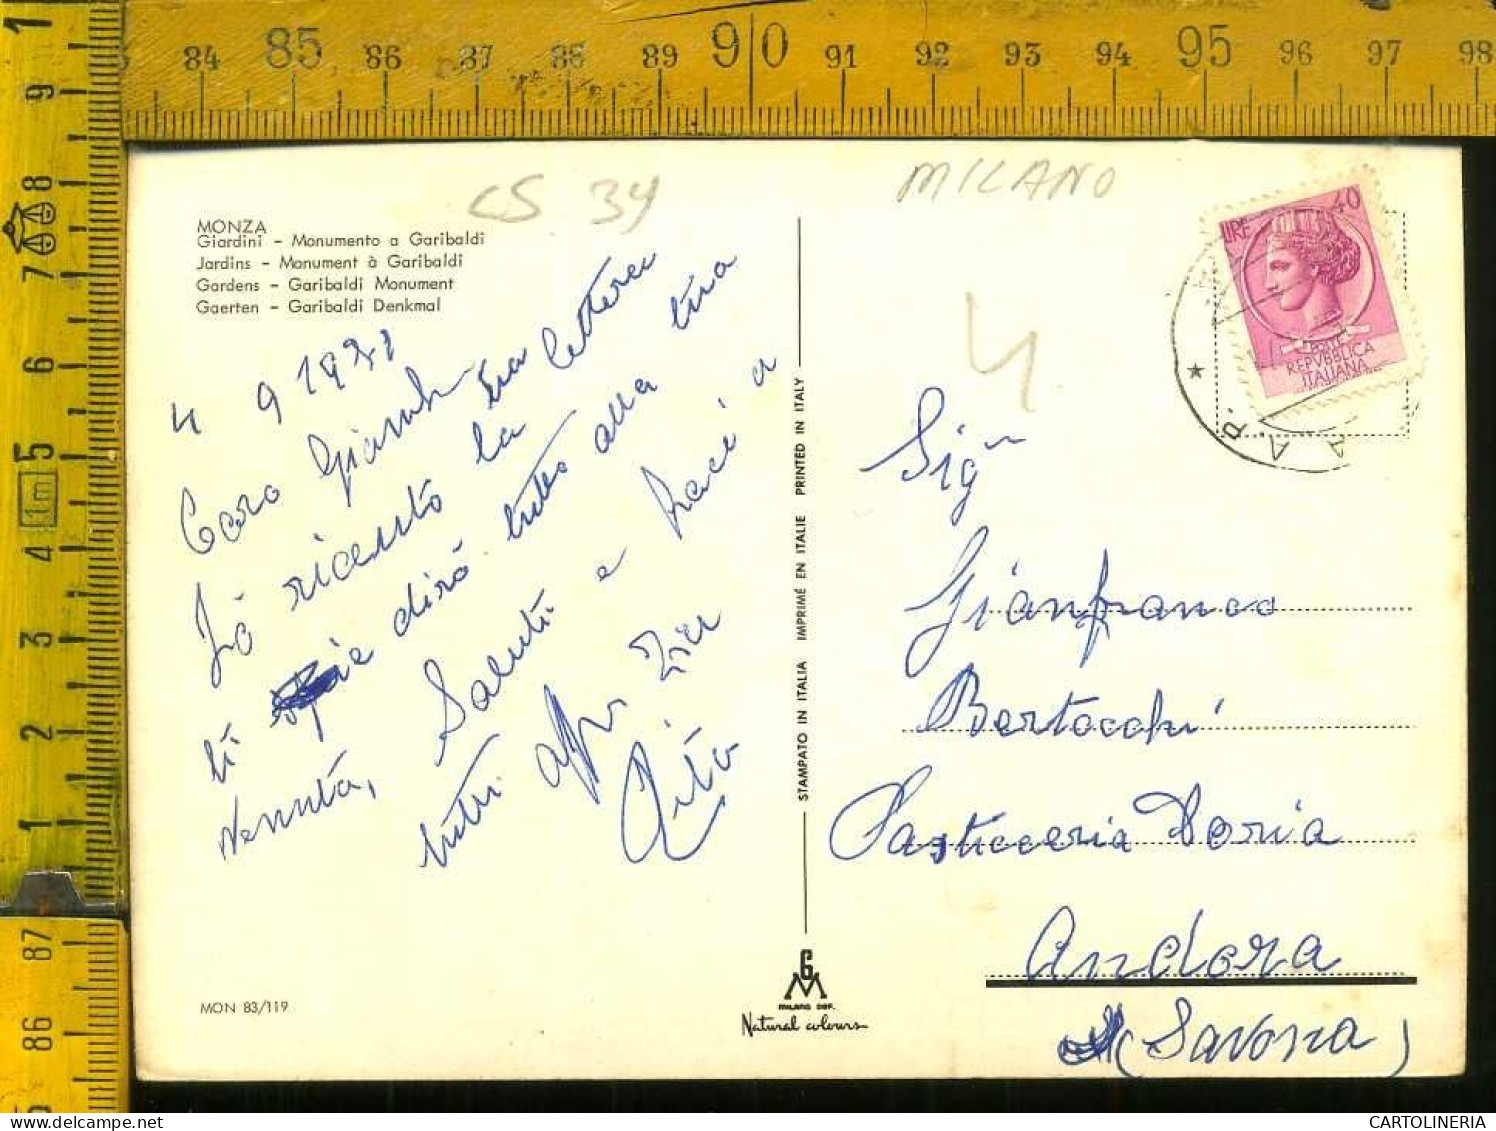 84 85 86 87 88 89 90 91 92 93 94 95 96 97 98
1 9 8 7 6 5 1m 4 3 2 1
87
86
CS 34
MILANO
4
MONZA
Giardini - Monumento a Garibaldi
Jardins - Monument à Garibaldi
Gardens - Garibaldi Monument
Gaerten - Garibaldi Denkmal
4 9 19
Caro Giamb
Hò ricevuto la tua lettera
ti dirò tutto alla tua
venuta, Saluti e baci a
tutti Zia
Rita
MON 83/119
STAMPATO IN ITALIA IMPRIMÉ EN ITALIE PRINTED IN ITALY
G
M
MILANO DEP.
Natural colours
LIRE 40
POSTE
REPVBBLICA
ITALIANA
A. P.
Sig
Gianfranco
Bertocchi
Pasticceria Doria
Andora
(Savona)
CARTOLINERIA